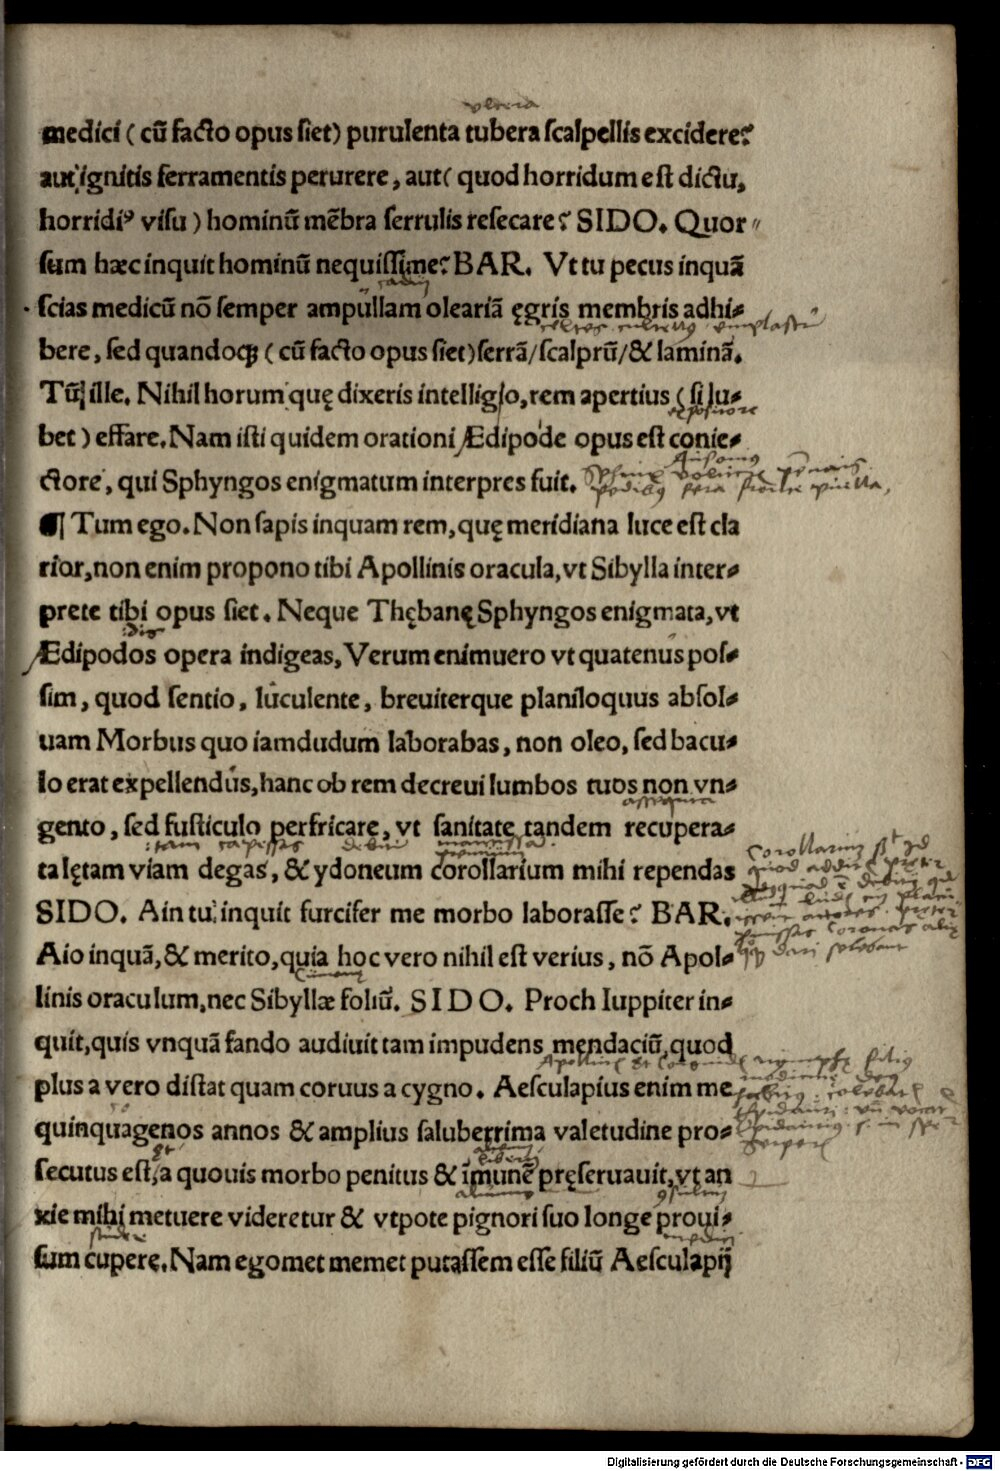 vlcera
medici ( cū facto opus siet) purulenta tubera scalpellis excidere?
aut ignitis ferramentis perurere, aut( quod horridum est dictu,
horridiꝰ visu ) hominū mēbra serrulis resecare? SIDO. Quor⸗
sum hæc inquit hominū nequissime? BAR. Vt tu pecus inquā
scias medicū nō semper ampullam oleariā ęgris membris adhi⸗
bere, sed quandoqꝫ ( cū facto opus siet)serrā/scalprū/& laminā.
Tū ille. Nihil horum quę dixeris intelligo, rem apertius ( si lu⸗
bet ) effare. Nam isti quidem orationi Ædipode opus est conie⸗
ctore, qui Sphyngos enigmatum interpres fuit.
¶ Tum ego. Non sapis inquam rem, quę meridiana luce est cla
rior, non enim propono tibi Apollinis oracula, vt Sibylla inter⸗
prete tibi opus siet. Neque Thębanę Sphyngos enigmata, vt
Ædipodos opera indigeas, Verum enimuero vt quatenus pos⸗
sim, quod sentio, luculente, breuiterque planiloquus absol⸗
uam Morbus quo iamdudum laborabas, non oleo, sed bacu⸗
lo erat expellendus, hanc ob rem decreui lumbos tuos non vn⸗
gento, sed fusticulo perfricare, vt sanitate tandem recupera⸗
ta lętam viam degas, & ydoneum corollarium mihi rependas
SIDO. Ain tu, inquit furcifer me morbo laborasse? BAR.
Aio inquā, & merito, quia hoc vero nihil est verius, nō Apol⸗
linis oraculum, nec Sibyllæ foliū. SIDO. Proch Iuppiter in⸗
quit, quis vnquā fando audiuit tam impudens mendaciū, quod
plus a vero distat quam coruus a cygno. Aesculapius enim me
quinquagenos annos & amplius saluberrima valetudine pro⸗
secutus est, a quouis morbo penitus & īmunē pręseruauit, vt an
xie mihi metuere videretur & vtpote pignori suo longe proui⸗
sum cupere. Nam egomet memet putassem esse filiū Aesculapij
Digitalisierung gefördert durch die Deutsche Forschungsgemeinschaft - DFG